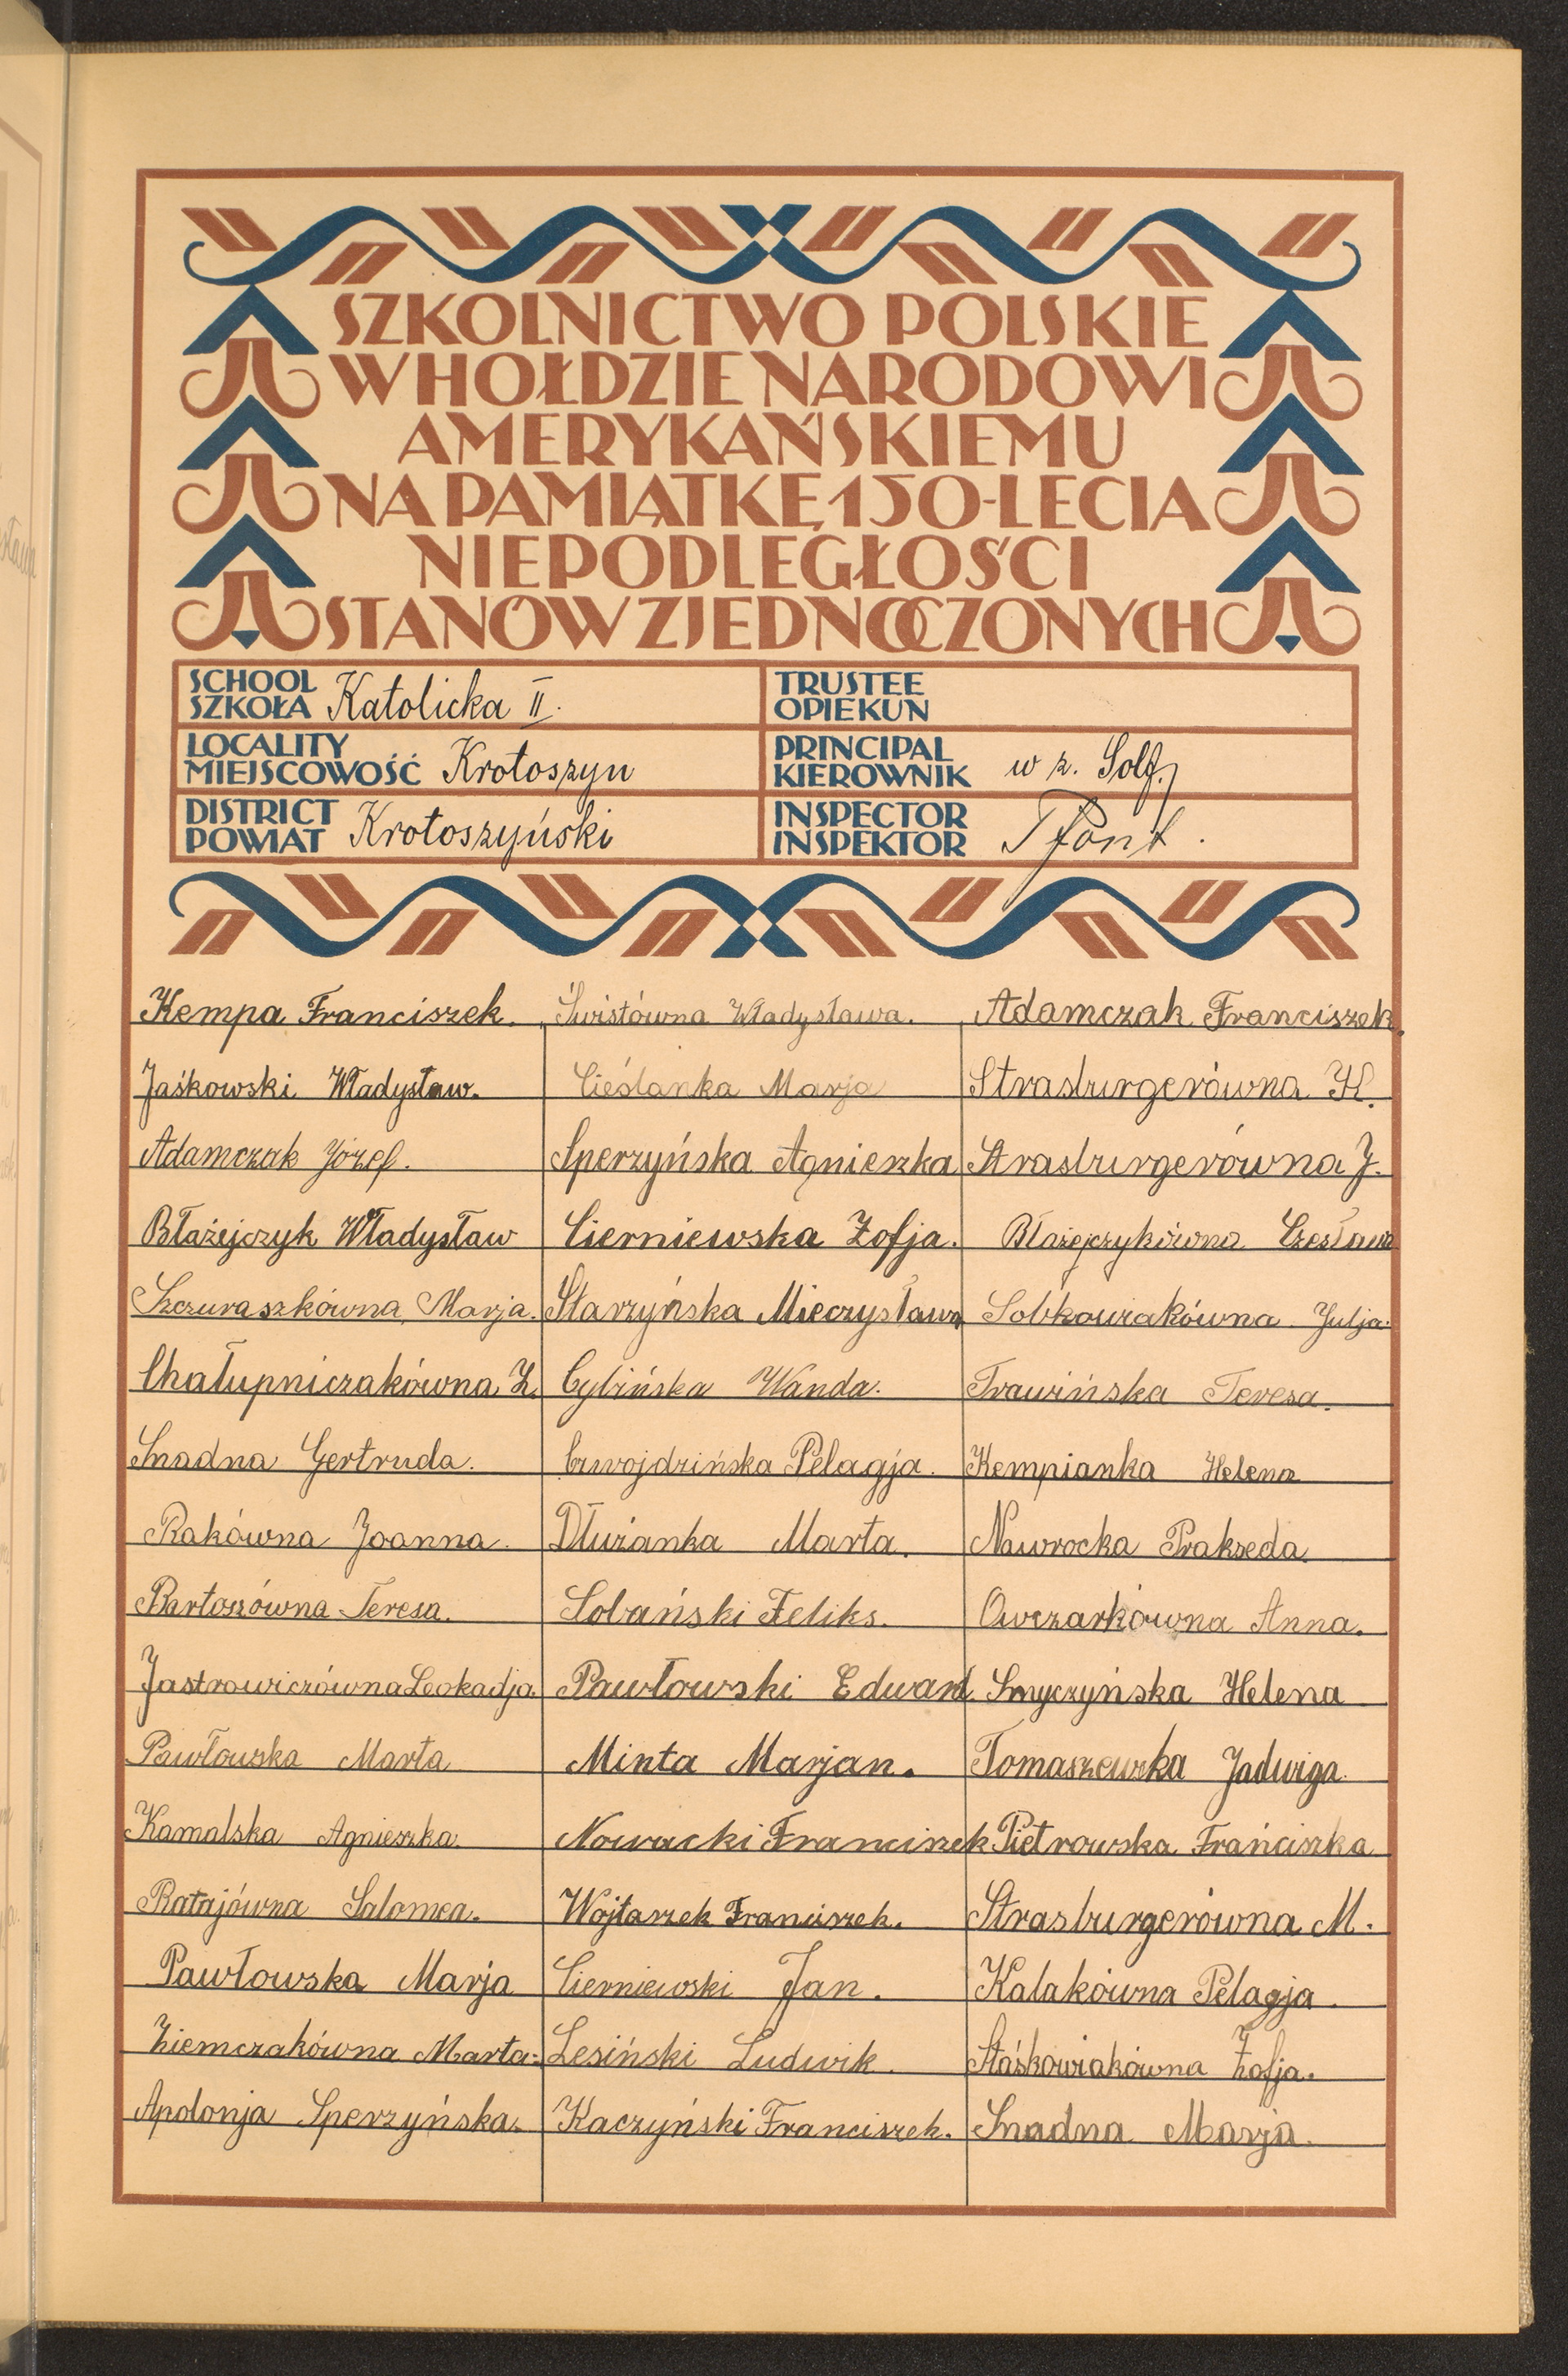 SZKOLNICTWO POLSKIE
W HOŁDZIE NARODOWI
AMERYKAŃSKIEMU
NA PAMIĄTKĘ 150-LECIA
NIEPODLEGŁOŚCI
STANÓW ZJEDNOCZONYCH
SCHOOL
SZKOŁA Katolicka II.
TRUSTEE
OPIEKUN
LOCALITY
MIEJSCOWOŚĆ Krotoszyn
PRINCIPAL
KIEROWNIK w z.
DISTRICT
POWIAT Krotoszyński
INSPECTOR
INSPEKTOR
Kempa Franciszek.
Jaśkowski Władysław.
Adamczak Józef.
Błażejczyk Władysław
Szczuraszkówna Marja.
Chałupniczakówna Z.
Snadna Gertruda.
Rakówna Joanna.
Bartoszówna Teresa.
Jastrowiczówna Leokadja.
Pawłowska Marta
Kamalska Agnieszka.
Ratajówna Salomea.
Pawłowska Marja
Ziemczakówna Marta.
Apolonja Sperzyńska.
Świstówna Władysława.
Cieślanka Marja
Sperzyńska Agnieszka
Cierniewska Zofja.
Starzyńska Mieczysława
Cybińska Wanda.
Czwojdzińska Pelagja.
Dłużanka Marta.
Sobański Feliks.
Pawłowski Edward
Minta Marjan.
Nowacki Franciszek
Wojtaszek Franciszek.
Cierniewski Jan.
Lesiński Ludwik.
Kaczyński Franciszek.
Adamczak Franciszek.
Strasburgerówna K.
Strasburgerówna J.
Błażejczykówna Czesława
Sobkowiakówna Julja.
Trawińska Teresa.
Kempianka Helena
Nawrocka Prakseda.
Owczarkówna Anna.
Smyczyńska Helena
Tomaszewska Jadwiga.
Pietrowska Frańciszka
Strasburgerówna M.
Kalakówna Pelagja.
Staśkowiakówna Zofja.
Snadna Marja.